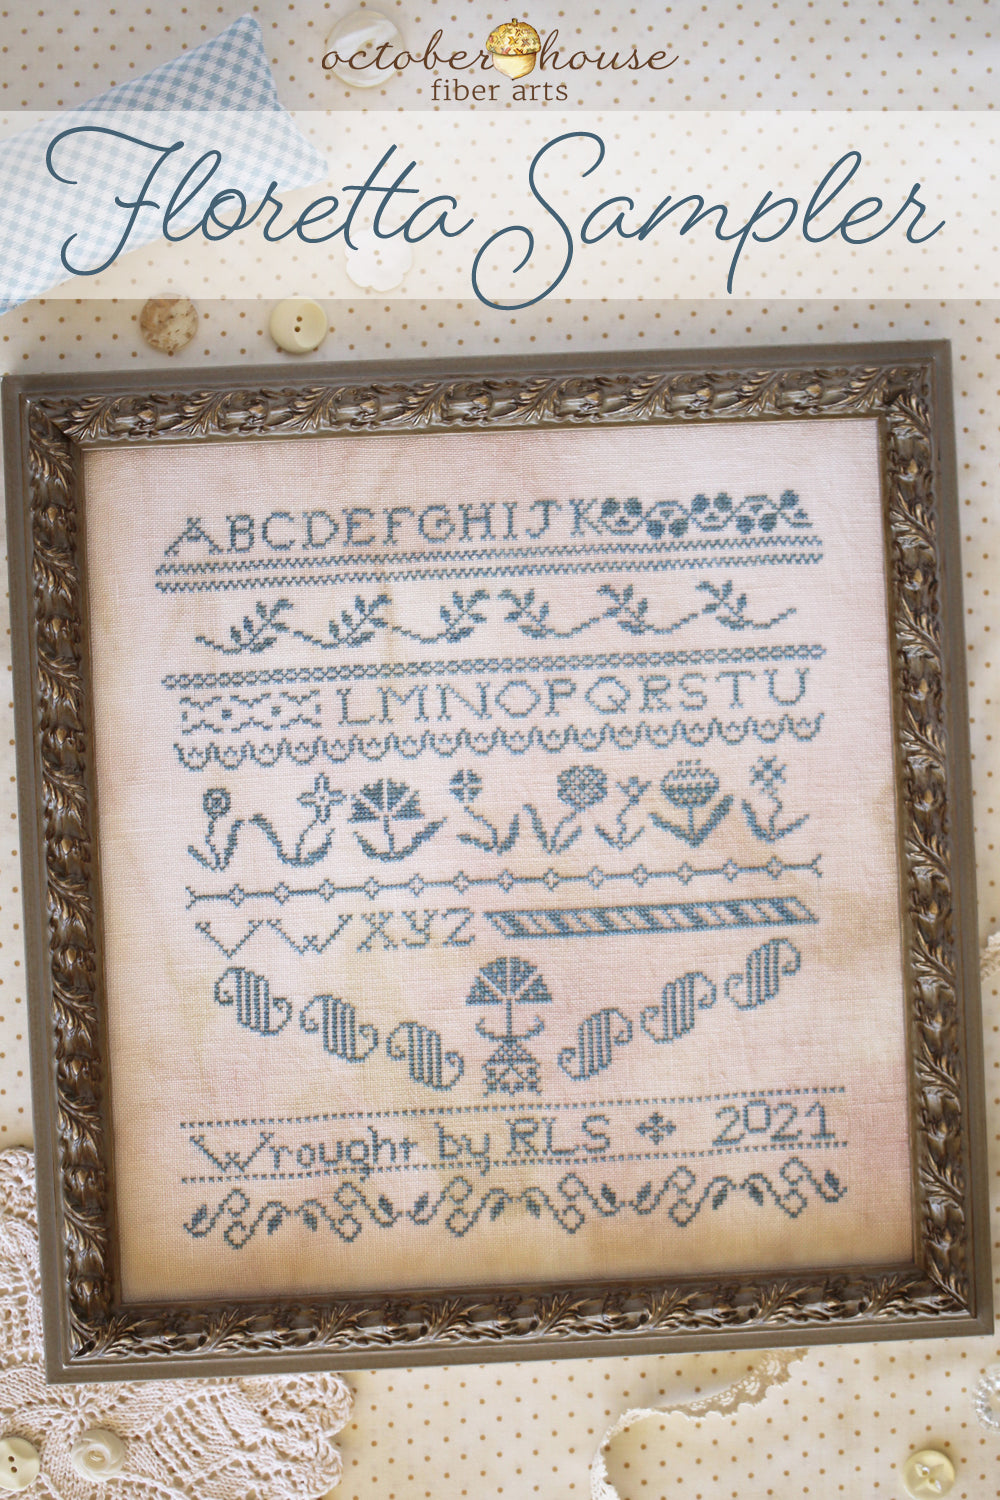 october house
fiber arts
Floretta Sampler
ABCDEFGHIJK
LMNOPQRSTU
VWXYZ
Wrought by RLS 2021